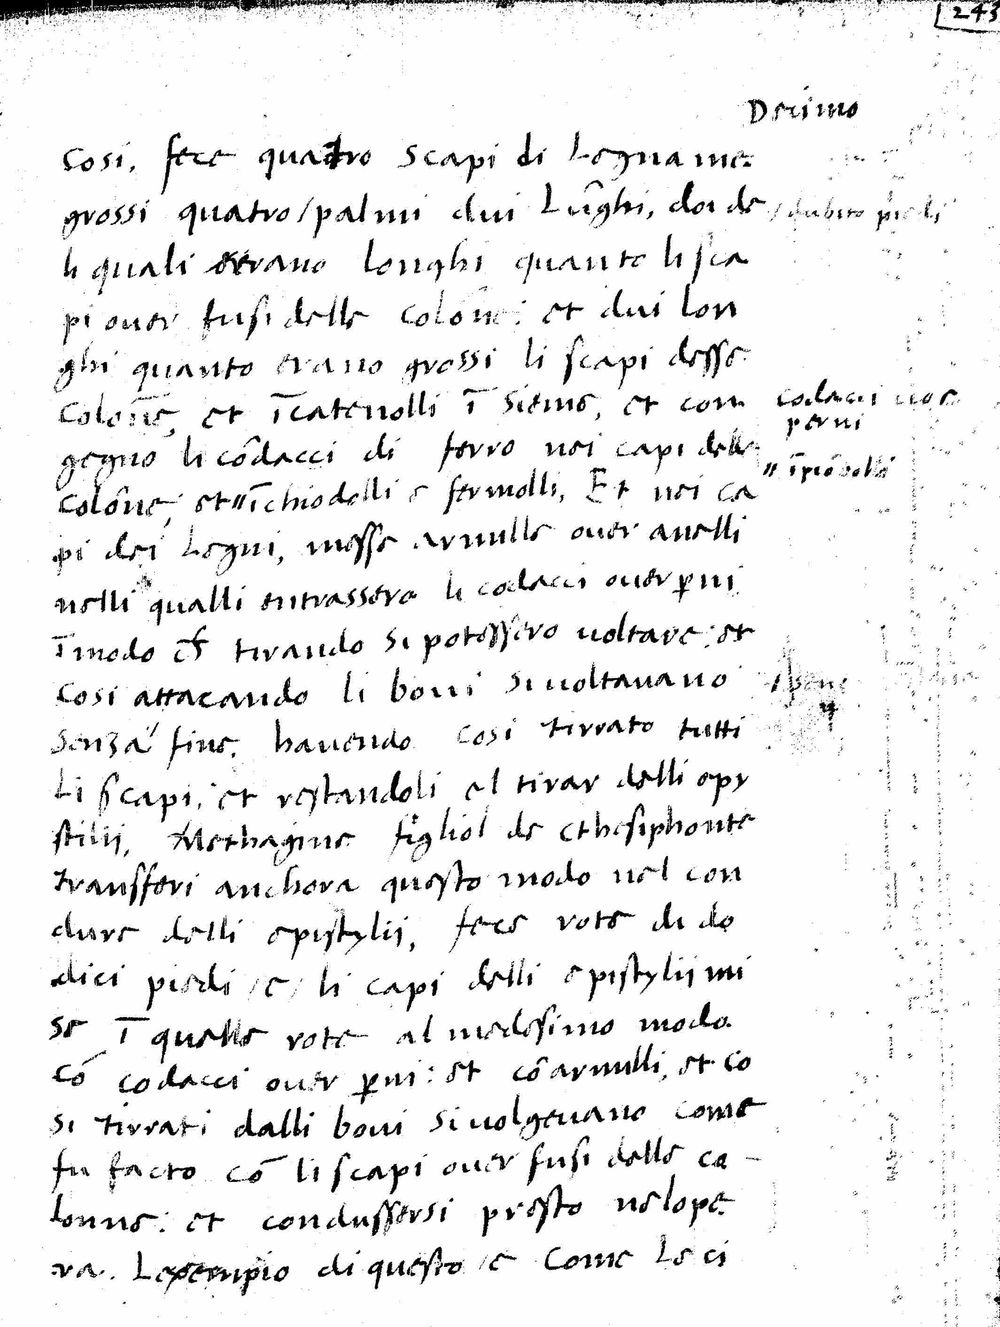 243
Decimo
Cosi, fece quatro scapi di Legname
grossi quatro/palmi dui Lūghi, doi de /dubito piedi
li quali erano longhi quanto li sca
pi over fusi delle colōne: et dui lon
ghi quanto erano grossi li scapi desse
Colōne, et īcatenolli ī sieme, et con codacci
gegno li cōdacci di ferro nei capi delle perni
Colōne, et " īchiodelli e fermolli, Et nei ca "
pi dei Legni, messe armille over anelli
nelli qualli entrassero li codacci over ꝑni
īmodo ch̄ tirando si potessero voltare: et
Cosi attacando li bovi si voltavano
Senza fine. havendo cosi tirrato tutti
Li scapi, et restandoli el tirar delli epy
stilii, Methagine figliol de cthesiphonte
transferi anchora questo modo nel con
dure delli epistylij, fece rote di do
dici piedi /e/ li capi delli epistylii mi
se ī quelle rote al medesimo modo
cō codacci over ꝑni: et cō armilli, et co
si tirrati dalli bovi si volgevano come
fu facto cō li scapi over fusi delle co-
lonne: et condussersi presto nelope
ra. Lexempio di questo /e Come Le ci